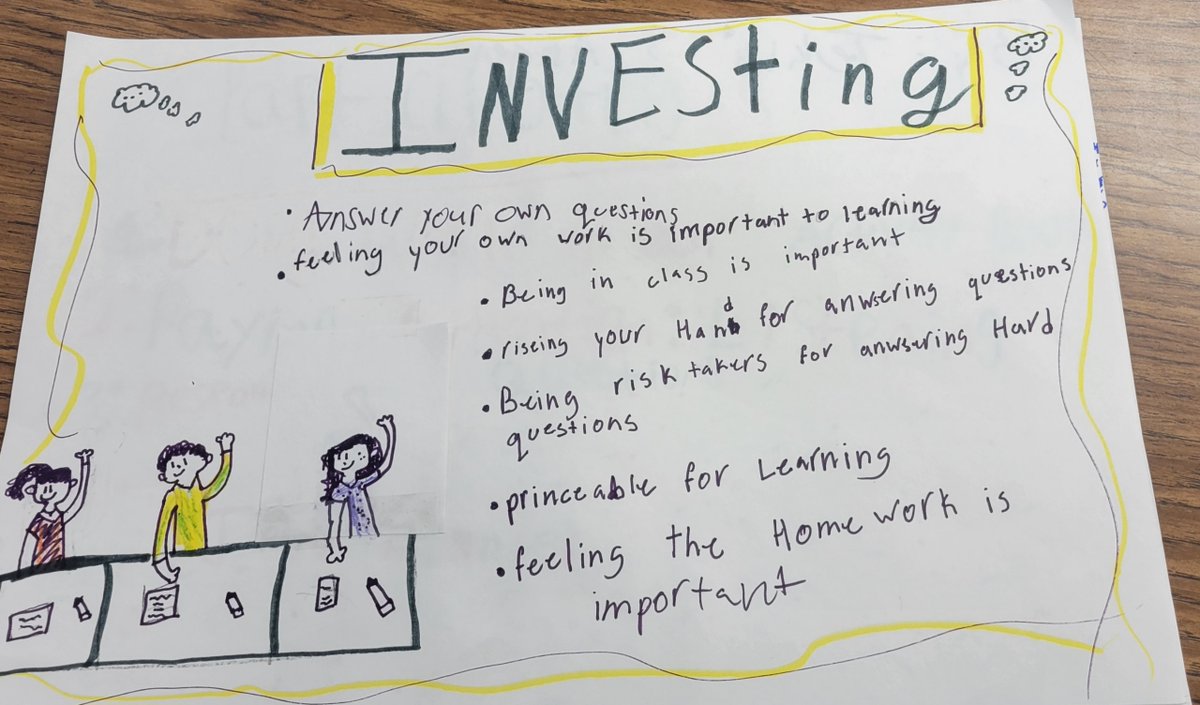 INVESting
• Answer your own questions
• feeling your own work is important to learning
• Being in class is important
• riseing your Hand for anwsering questions
• Being risk takers for anwsering Hard
questions
• princeable for Learning
• feeling the Home work is
important